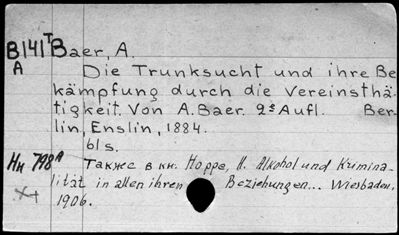 B141T Baer, A.
A
Die Trunksucht und ihre Be
kämpfung durch die Vereinsthä-
tigkeit. Von A. Baer. 2s Aufl. Ber-
lin, Enslin, 1884.
61 s.
Нн 798A Также в кн. Hoppe, H. Alkohol und Krimina-
lität in allen ihren Beziehungen... Wiesbaden,
1906.